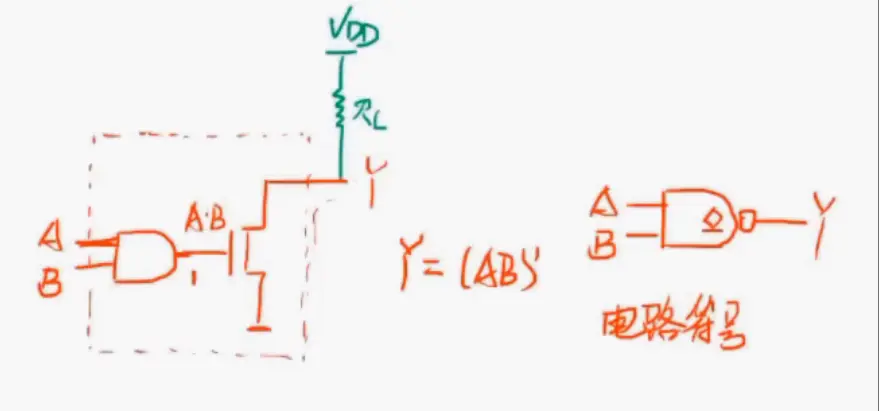 VDD
RL
Y
A·B
A
B
1
Y=(AB)'
A
B
Y
电路符号